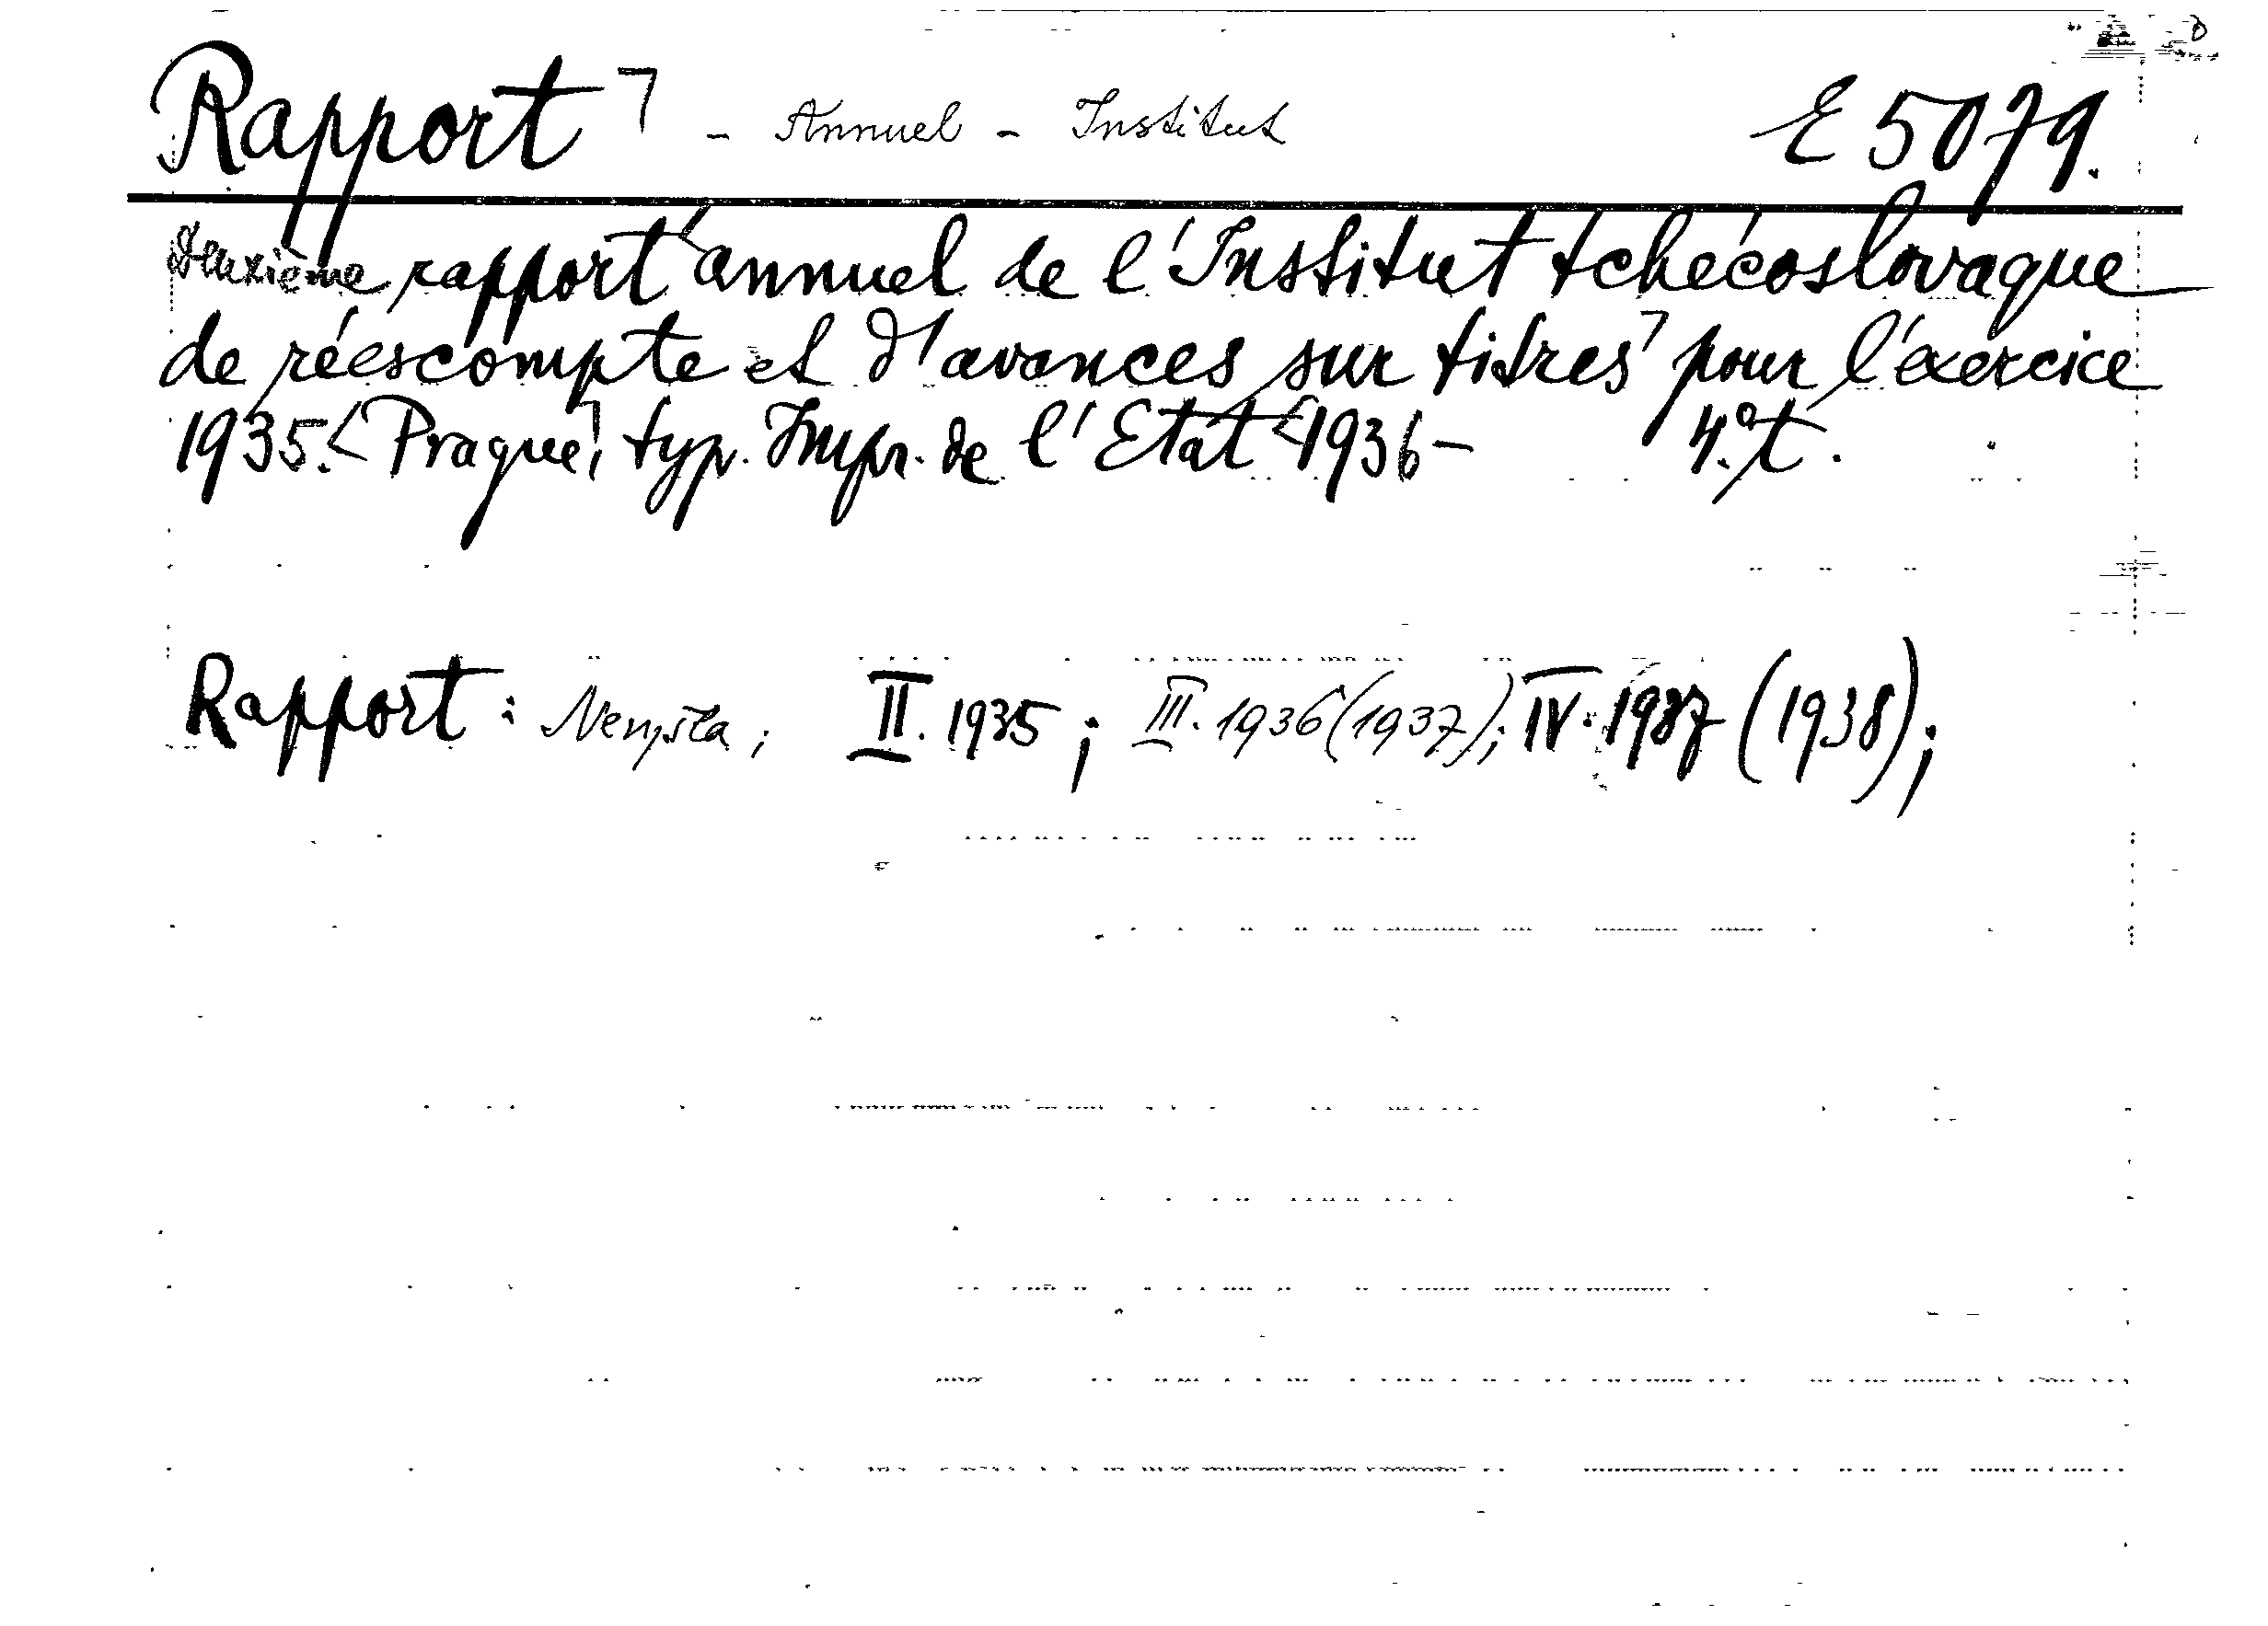 Rapport ⌉ - Annuel - Institut E 5079.
Deuxième rapport annuel de l'Institut tchécoslovaque
de réescompte et d'avances sur titres pour l'exercice
1935. Prague, typ. Impr. de l'Etat 1936 - 4.° t.
Rapport: II. 1935; III. 1936 (1937); IV. 1937 (1938);